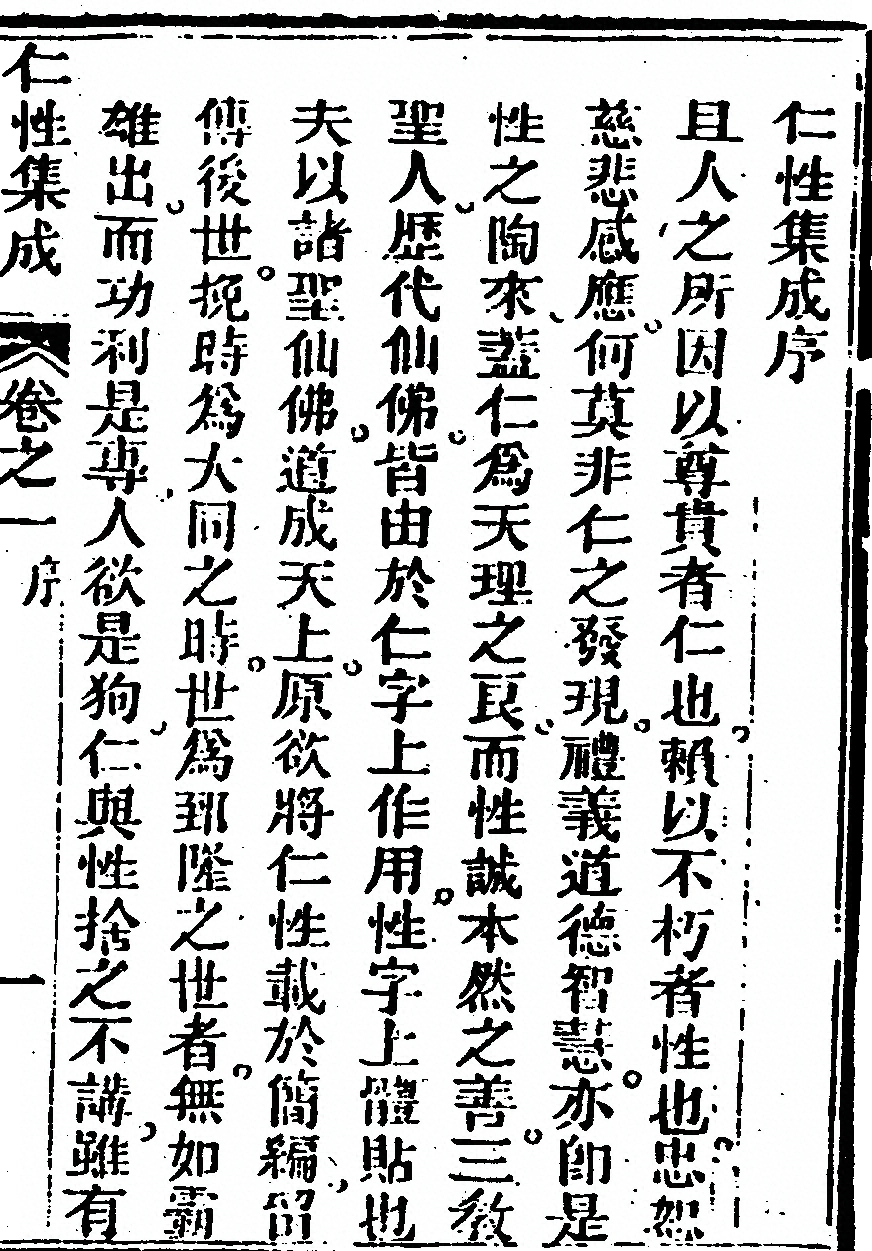 仁性集成序
且人之所因以尊貴者仁也賴以不朽者性也忠恕
慈悲感應何莫非仁之發現禮義道德智慧亦卽是
性之陶來蓋仁爲天理之良而性誠本然之善三教
聖人歷代仙佛皆由於仁字上作用性字上體貼也
夫以諸聖仙佛道成天上原欲將仁性載於簡編留
傳後世挽時爲大同之時世爲郅隆之世者無如霸
雄出而功利是專人欲是狥仁與性捨之不講雖有
仁性集成 卷之一 序 一